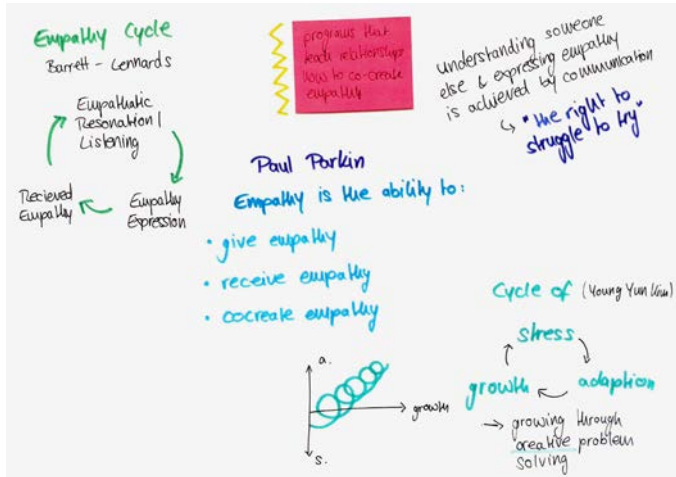 Empathy Cycle
Barrett - Lennards
Empathatic
Resonation /
Listening
Empathy
Expression
Recieved
Empathy
programs that
teach relationships
how to co-create
empathy
understanding someone
else & expressing empathy
is achieved by communication
↳ "the right to
struggle to try"
Paul Parkin
Empathy is the ability to:
• give empathy
• receive empathy
• cocreate empathy
a.
growth
s.
Cycle of (Young Yun Kim)
stress
adaption
growth
→ growing through
creative problem
solving